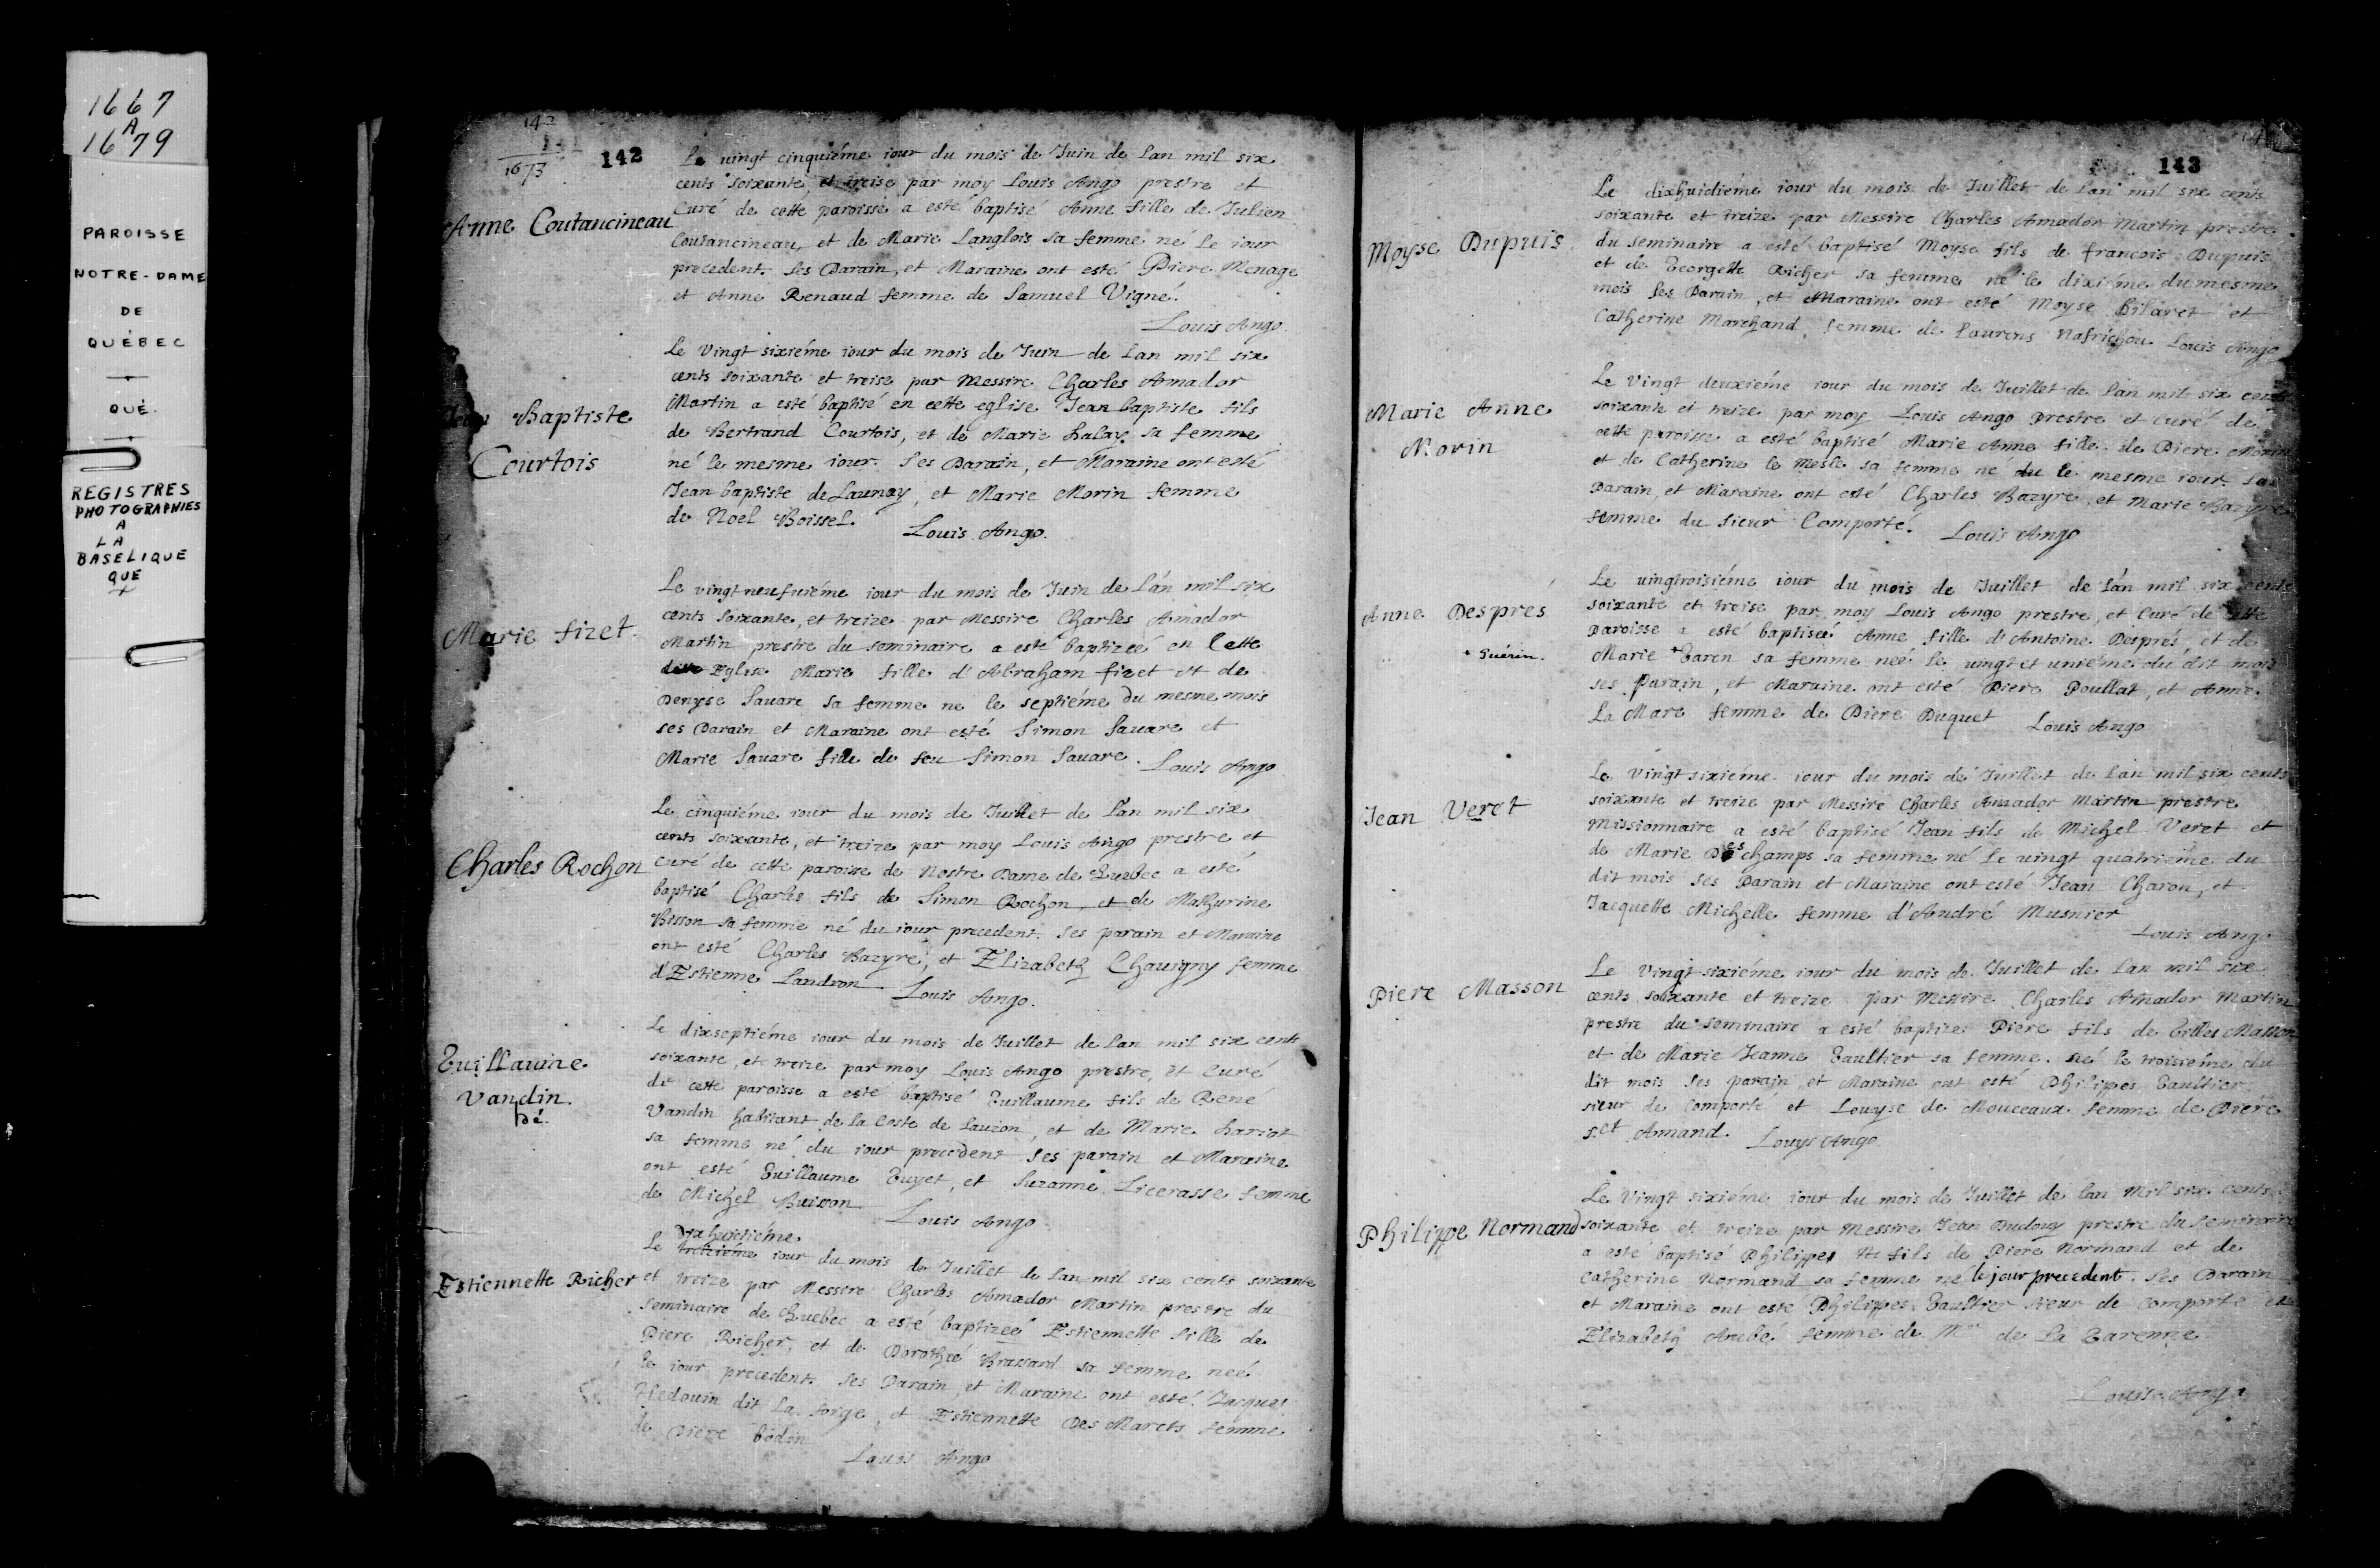 1667
A
1679
PAROISSE
NOTRE-DAME
DE
QUÉBEC
QUÉ.
REGISTRES
PHOTOGRAPHIES
A
LA
BASELIQUE
QUE
142
1673
142
Le vingt cinquiéme iour du mois de Iuin de lan mil six
cents soixante, et treise par moy Louis Ango prestre et
Curé de cette paroisse a esté baptisé Anne fille de Iulien
Anne Coutancineau
Coutancineau, et de Marie Langlois sa femme né le iour
precedent. ses Parain, et Maraine ont esté Piere Menage
et Anne Renaud femme de Samuel Vigné.
Louis Ango.
Le Vingt sixiéme iour du mois de Iuin de lan mil six
cents soixante et treise par Messire Charles Amador
Martin a esté baptisé en cette eglise Iean baptiste fils
Baptiste
Courtois
de Bertrand Courtois, et de Marie Lalay sa femme
né le mesme iour. Ses Parain, et Maraine ont esté
Iean baptiste de Launay, et Marie Morin femme
de Noel Boissel. Louis Ango.
Le vingt neufuiéme iour du mois de Iuin de Lán mil six
cents soixante, et treize par Messire Charles Amador
Marie fizet.
Martin prestre du seminaire a esté baptizeé en Cette
Eglise Marie fille d'Abraham fizet et de
Denyse Sauare sa femme ne le septiéme du mesme mois
ses Parain et Maraine ont esté Simon Sauare et
Marie Sauare fille de feu Simon Sauare. Louis Ango
Le cinquiéme iour du mois de Iuillet de l'an mil six
cents soixante, et treize par moy Louis Ango prestre et
Charles Rochon
curé de cette paroisse de Nostre Dame de Quebec a esté
baptisé Charles fils de Simon Rochon, et de Mathurine
Bisson sa femme né du iour precedent. Ses parain et Maraine
ont esté Charles Bazyre, et Elizabeth Chauigny femme
d'Estienne Landron. Louis Ango.
Le dixseptiéme iour du mois de Iuillet de lan mil six cents
Guillaume
Vandin.
bé.
soixante, et treize par moy Louis Ango prestre, et Curé
de cette paroisse a esté baptisé Guillaume fils de René
Vandin habitant de la Coste de Lauzon, et de Marie hariot
sa femme né du iour precedent ses parain et Maraine
ont esté Guillaume Guyet, et Suzanne Licerasse femme
de Michel Buisson Louis Ango
dixhuictiéme
Le treiziéme iour du mois de Iuillet de lan mil six cents soixante
Estiennette Richer
et treize par Messire Charles Amador Martin prestre du
seminaire de Quebec a esté baptizeé Estiennette fille de
Piere Richer, et de Dorotheé Brassard sa femme neé
le iour precedent. ses Parain, et Maraine ont esté Iacques
Hedouin dit La forge, et Estiennette Des Marets femme
de Piere bodin
Louis Ango
143
Le dixhuidiéme iour du mois de Iuillet de lan mil six cents
soixante et treize par Messire Charles Amador Martin prestre
Moyse Dupuis.
du seminaire a esté baptisé Moyse fils de francois Dupuis
et de Georgette Richer sa femme né le dixiéme du mesme
mois ses Parain, et Maraine ont esté Moyse hilaret et
Catherine Marchand, femme de Laurens Nafrichou. Louis Ango
Le Vingt deuxiéme iour du mois de Iuillet de lán mil six cents
Marie Anne
Morin
soixante et treize par moy Louis Ango prestre et curé de
cette paroisse a esté baptisé Marie Anne fille de Piere Morin
et de Catherine le mesle sa femme né du le mesme iour. ses
Parain, et Maraine ont esté Charles Bazyre, et Marie Bazyre
femme du sieur Comporté. Louis Ango
Le vingtroisiéme iour du mois de Iuillet de lán mil six cents
Anne Després
soixante et treise par moy Louis Ango prestre, et Curé de cette
Paroisse a esté baptiseé Anne fille d'Antoine Després, et de
+ Guérin.
Marie + Garen sa femme neé le vingt et uniéme du dit mois
ses Parain, et Maraine ont esté Piere Poullat, et Anne
La Mare femme de Piere Duquet Louis Ango
Le vingt sixiéme iour du mois de Iuillet de lan mil six cents
Iean Veret
soixante et treize par Messire Charles Amador Martin prestre
missionnaire a esté baptisé Iean fils de Michel Veret et
de Marie Deschamps sa femme né le vingt quatriéme du
dit mois ses Parain et Maraine ont esté Iean Charon, et
Iacquette Michelle femme d'André Musnier
Louis Ango
Le Vingt sixiéme iour du mois de Iuillet de lan mil six
Piere Masson
cents soixante et treize par Messire Charles Amador Martin
prestre du seminaire a esté baptize Piere fils de Gilles Masson
et de Marie Ieanne Gaultier sa femme. né le troisiéme du
dit mois ses parain, et Maraine ont esté Philippes Gaultier
sieur de Comporté et Louyse de Mouceaux femme de Piere
st Amand. Louys Ango
Le Vingt sixiéme iour du mois de Iuillet de lan mil six cents
Philippe Normand
soixante et treize par Messire Iean Dudouy prestre du seminaire
a esté baptisé Philippes fils de Piere Normand et de
Catherine Normand sa femme né le jour precedent. Ses Parain
et Maraine ont esté Philippes Gaultier sieur de Comporté et
Elizabeth Aubé femme de Mr de la Garenne
Louis Ango